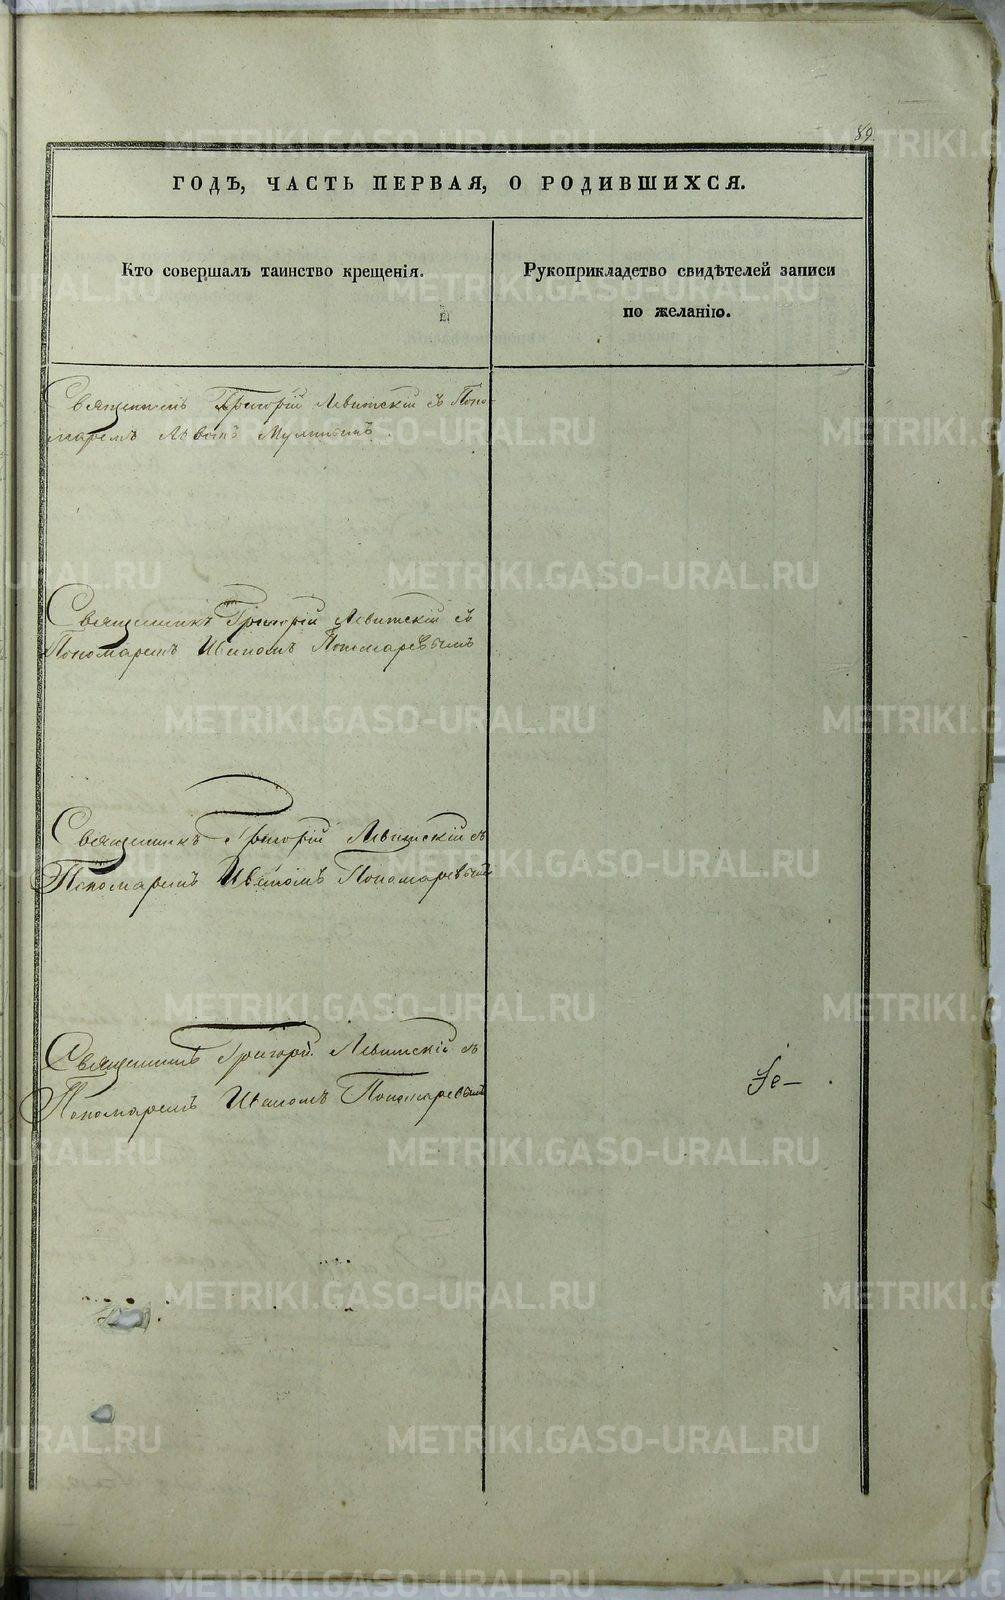 89.
ГОДЪ, ЧАСТЬ ПЕРВАЯ, О РОДИВШИХСЯ.
Кто совершалъ таинство крещенія.
Рукоприкладство свидѣтелей записи
по желанію.
Священникъ Григорій Левитскій съ Поно-
маремъ
Священникъ Григорій Левитскій съ
Пономаремъ Иваномъ Пономаревымъ
Священникъ Григорій Левитскій съ
Пономаремъ Иваномъ Пономаревымъ
Священникъ Григорій Левитскій съ
Пономаремъ Иваномъ Пономаревымъ
METRIKI.GASO-URAL.RU